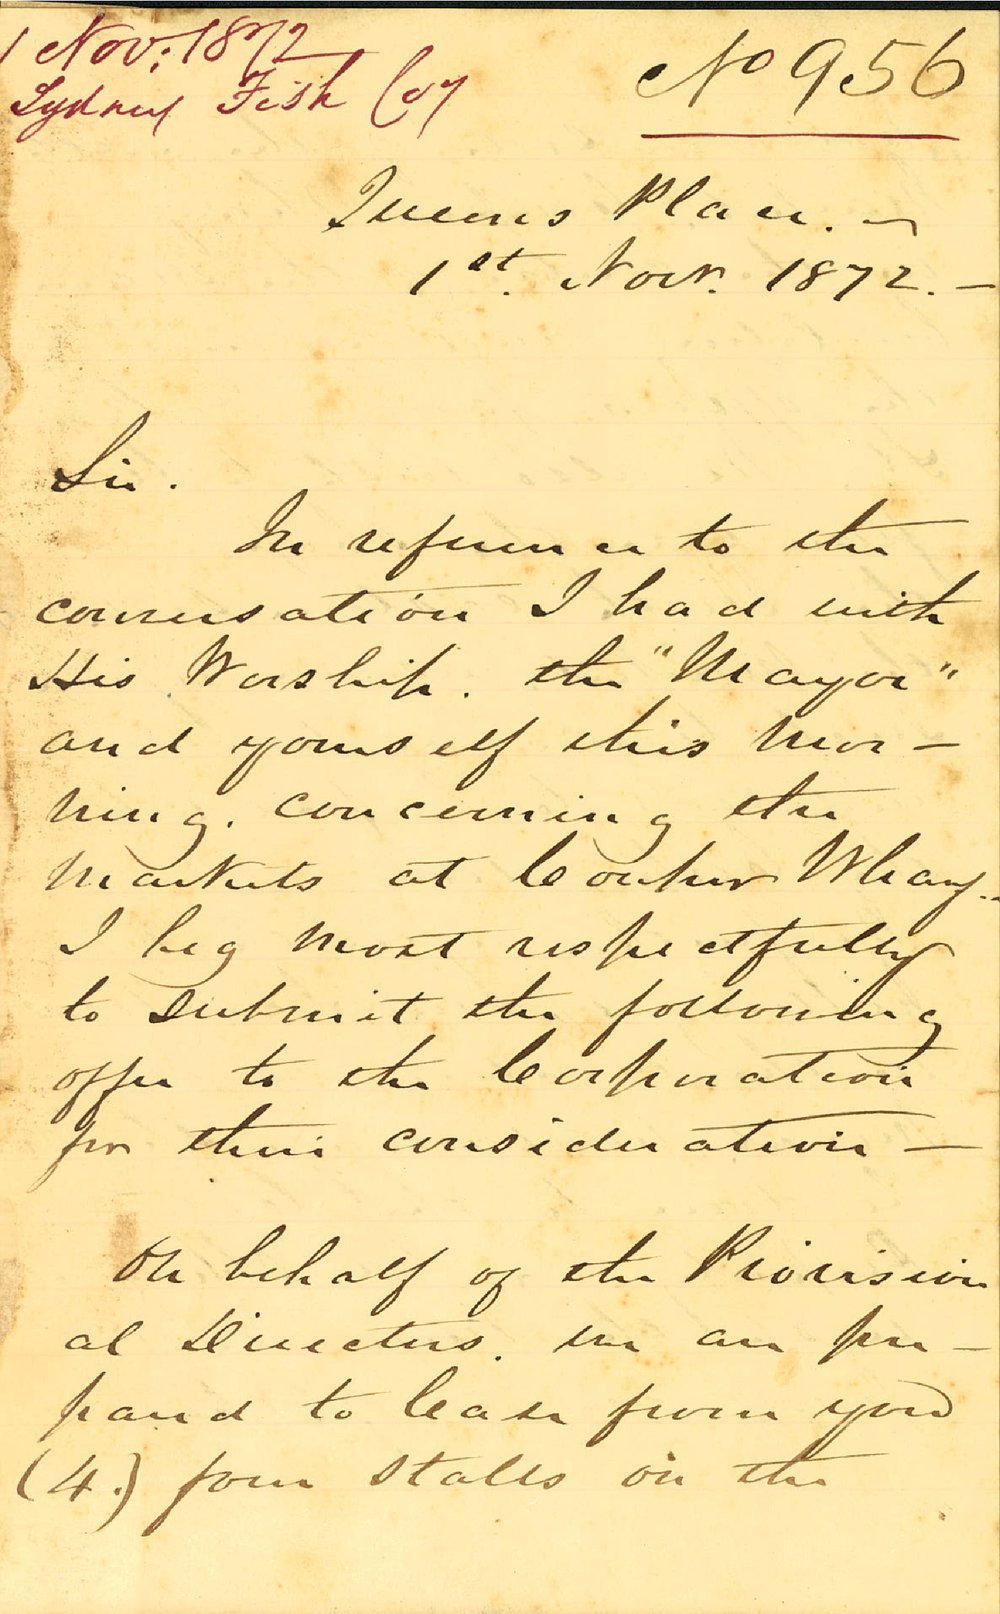 1 Nov: 1872
Sydney Fish Coy
No 956
Queens Place. —
1st. Novr. 1872. —
Sir.
In reference to the
conversation I had with
His Worship. the "Mayor"
and yourself this mor-
ning. concerning the
Markets at Cowper Wharf..
I beg most respectfully
to submit the following
offer to the Corporation
for their consideration —
On behalf of the Provision
al Directors. we are pre-
pared to lease from you
(4.) four Stalls on the